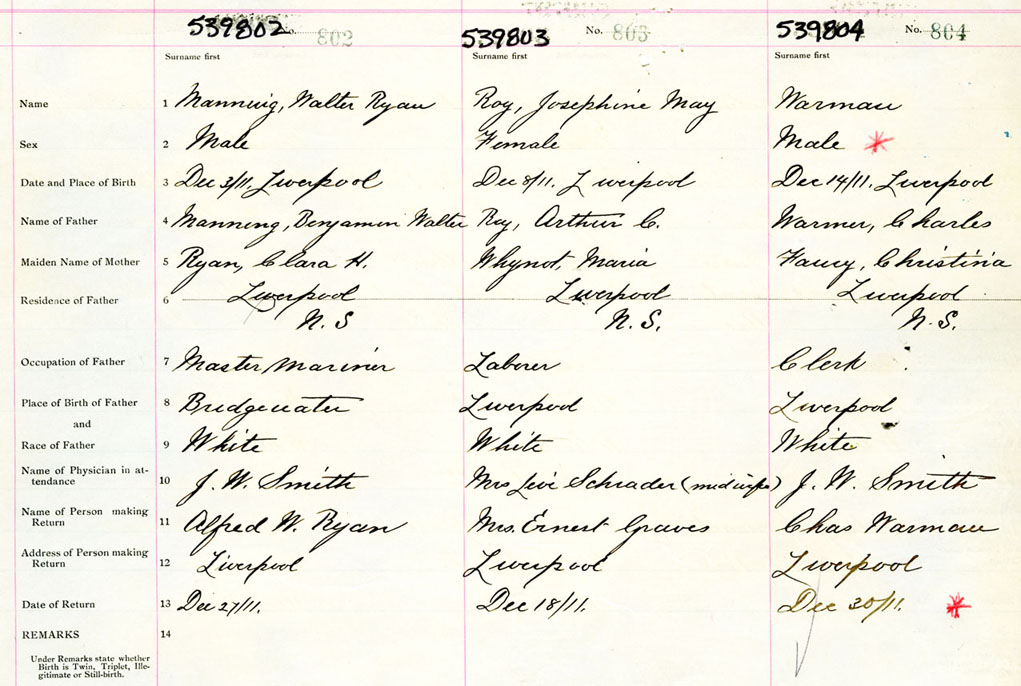 539802 No. 802 539803 No. 803 539804 No. 804
Surname first Surname first Surname first
Name 1 Manning, Walter Ryan Roy, Josephine May Warman
Sex 2 Male Female Male
Date and Place of Birth 3 Dec 3/11, Liverpool Dec 8/11. Liverpool Dec 14/11, Liverpool
Name of Father 4 Manning, Benjamin Walter Roy, Arthur C. Warmer, Charles
Maiden Name of Mother 5 Ryan, Clara H. Whynot, Maria Christina
Residence of Father 6 Liverpool Liverpool Liverpool
N.S N.S. N.S.
Occupation of Father 7 Master mariner Laborer Clerk
Place of Birth of Father 8 Bridgewater Liverpool Liverpool
and
Race of Father 9 White White White
Name of Physician in at-
tendance 10 J. W. Smith Mrs Levi Schrader (midwife) J. W. Smith
Name of Person making
Return 11 Alfred W. Ryan Mrs. Ernest Graves Chas Warman
Address of Person making
Return 12 Liverpool Liverpool Liverpool
Date of Return 13 Dec 27/11. Dec 18/11. Dec 30/11.
REMARKS 14
Under Remarks state whether
Birth is Twin, Triplet, Ille-
gitimate or Still-birth.